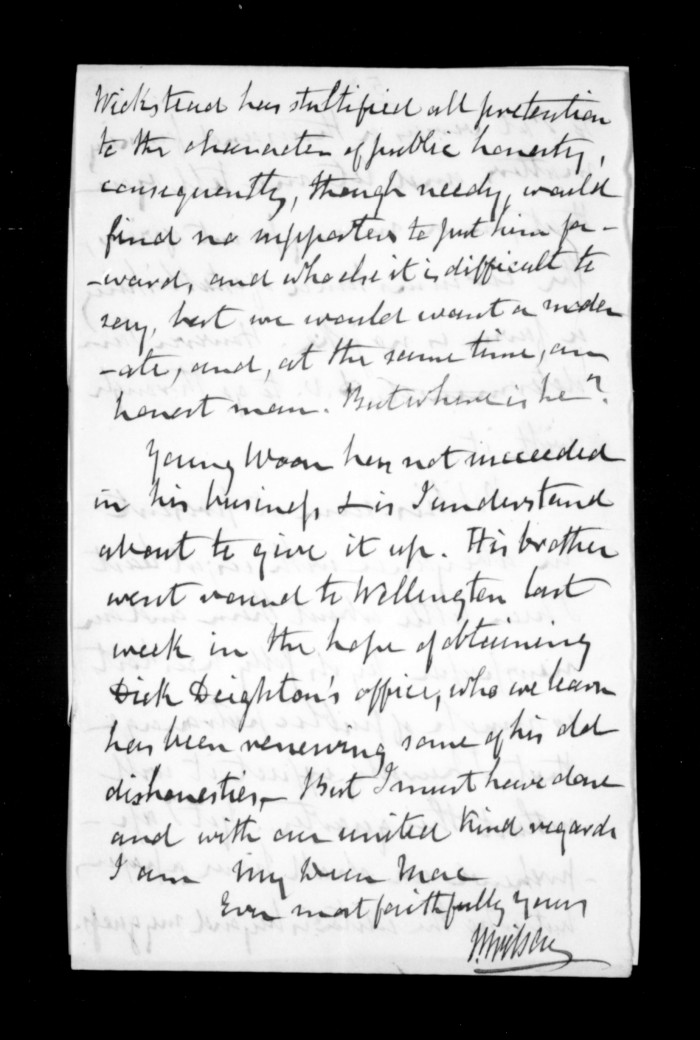 Wickstead has stultified all pretention
to the character of public honesty,
consequently, though needy, would
find no supporters to put him for-
-ward, and who else it is difficult to
say, but we would want a moder
-ate, and, at the same time, an
honest man. But where is he?
Young Woon has not succeeded
in his business & is I understand
about to give it up. His brother
went round to Wellington last
week in the hope of obtaining
Dick Deighton's office, who we learn
has been renewing some of his old
dishonesties - But I must have done
and with our united kind regards
I am My Dear Mac
Ever most faithfully yours
Wilson